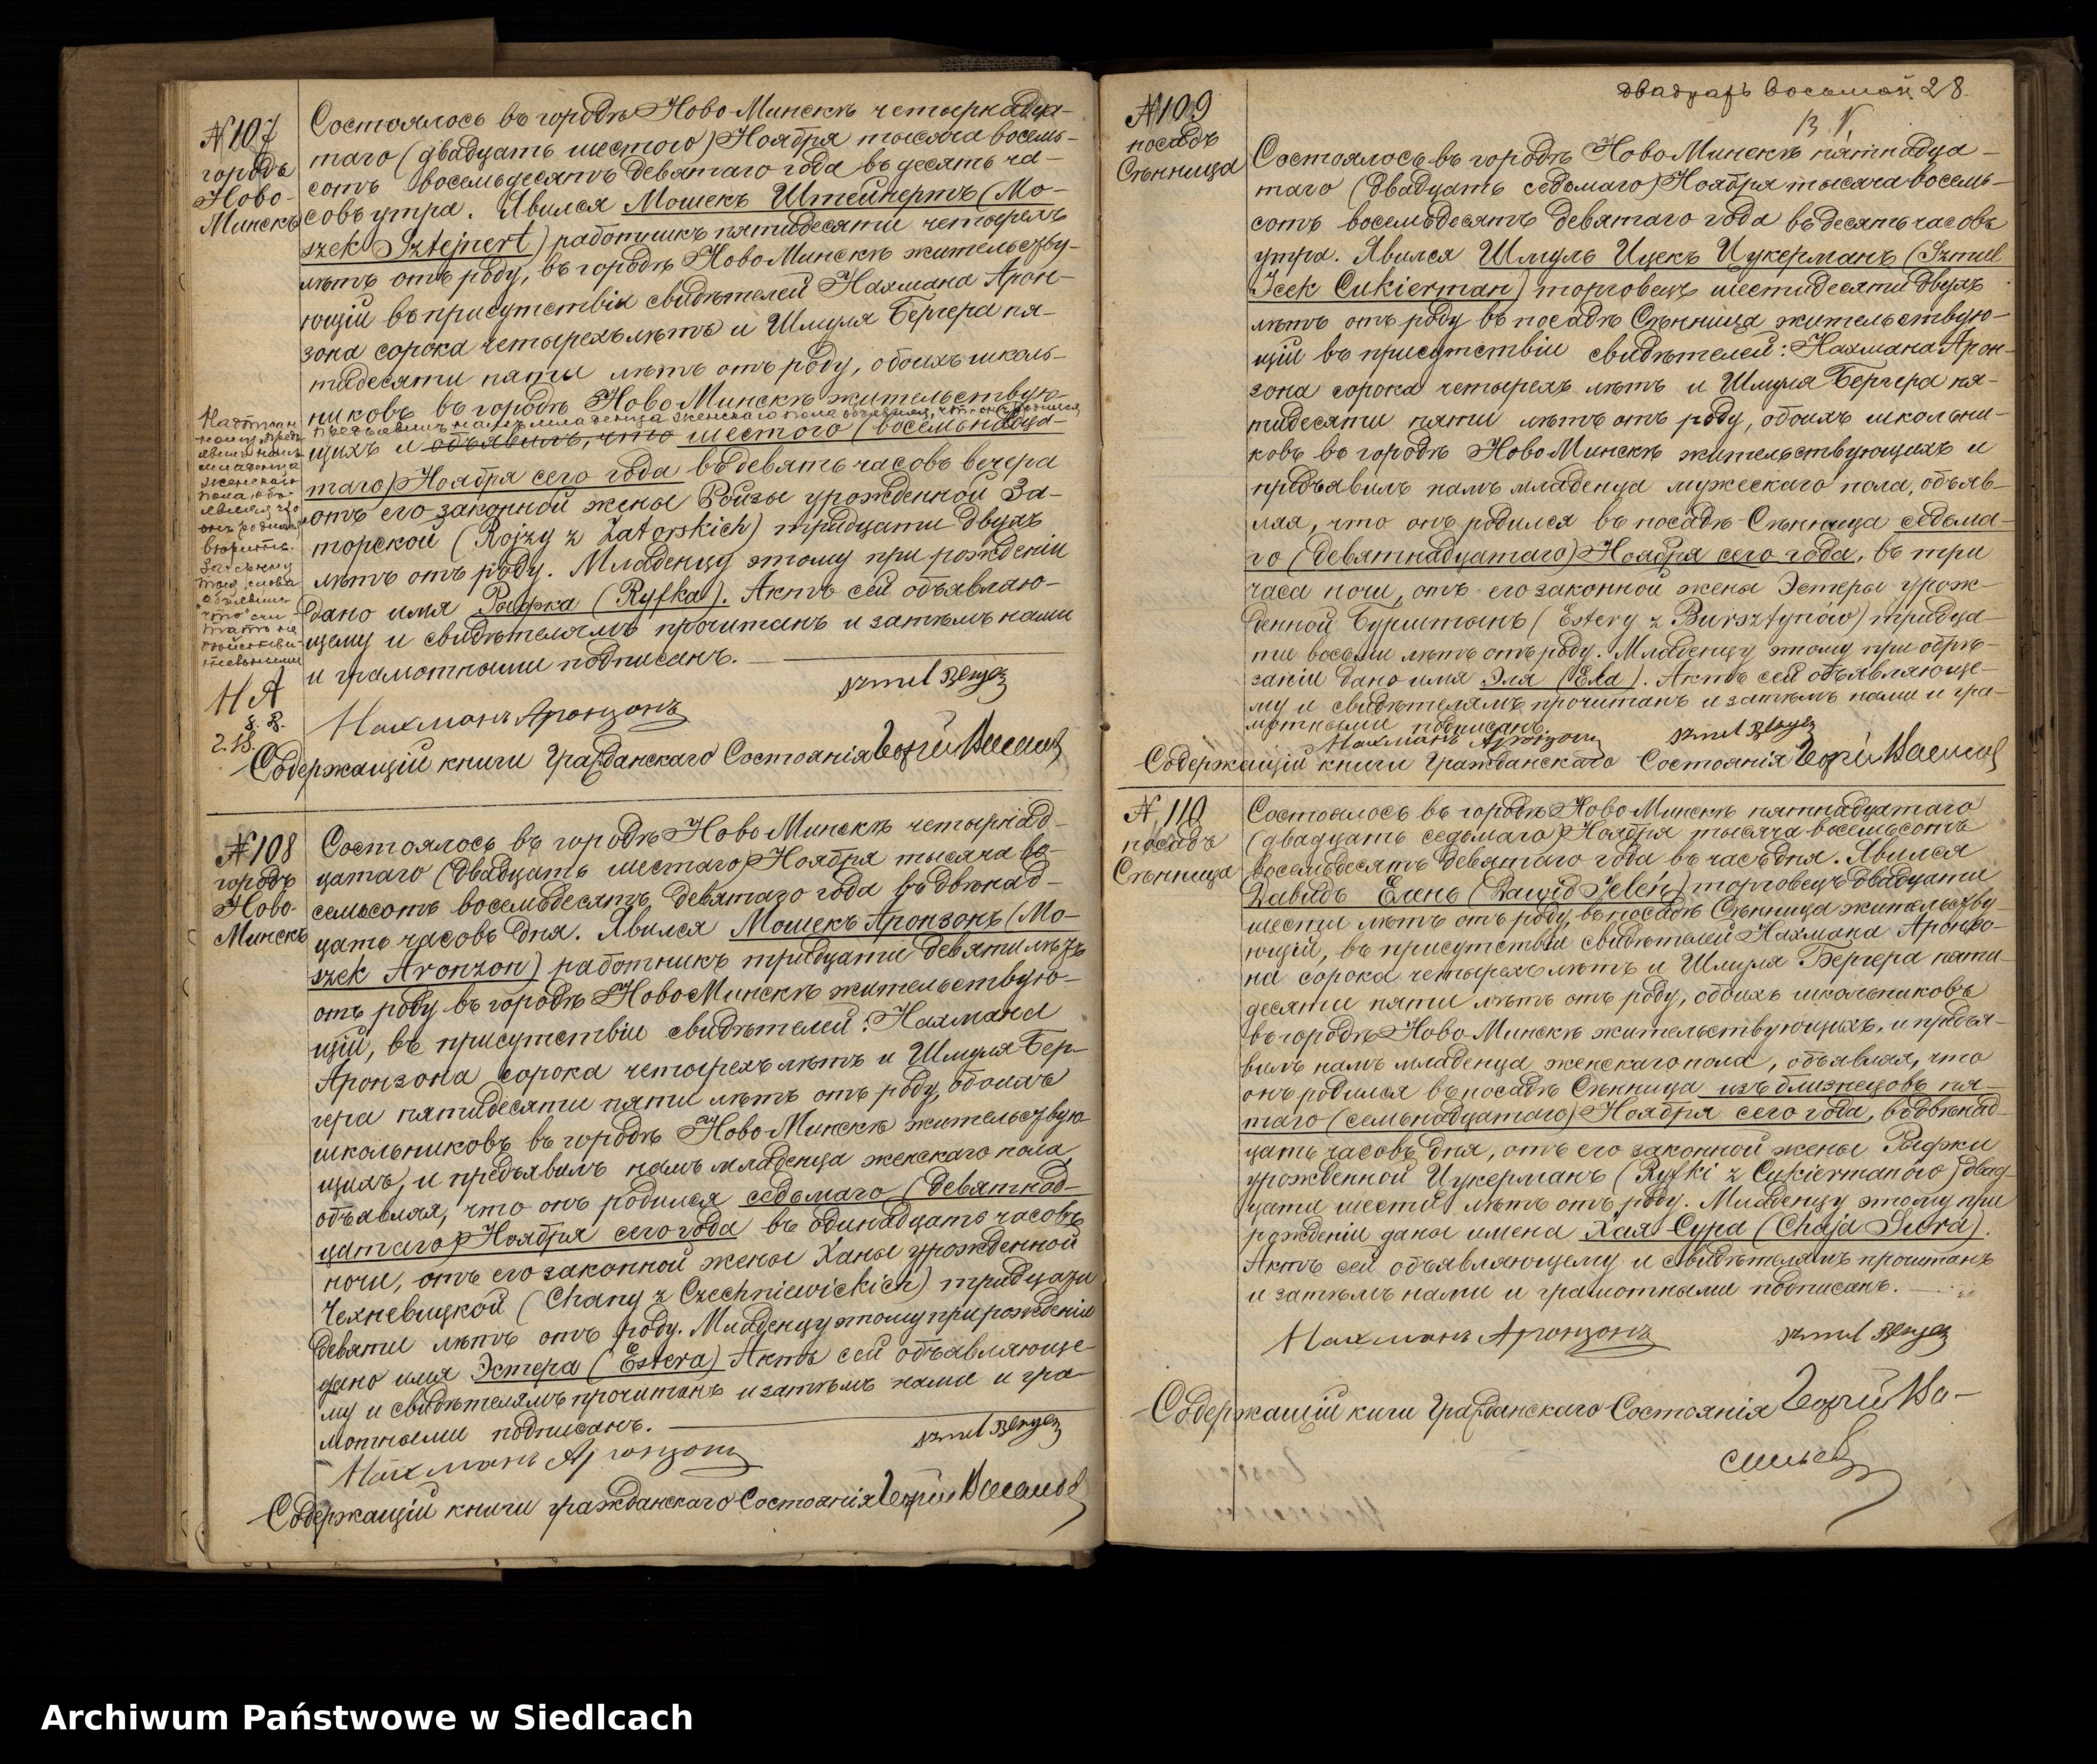 № 107
городъ
Ново-
Минскъ
Состоялось въ городѣ Ново-Минскѣ четырнадца-
таго (двадцать шестого) Ноября тысяча восемь-
сотъ восемьдесятъ девятаго года въ десять ча-
совъ утра. Явился Мошекъ Штейнертъ (Mo-
szek Sztejnert) работникъ пятидесяти четырехъ
лѣтъ отъ роду, въ городѣ Ново Минскѣ жительству-
ющій въ присутствіи свидѣтелей Нахмана Арон-
зона сорока четырехъ лѣтъ и Шмуля Бергера пя-
тидесяти пяти лѣтъ отъ роду, обоихъ школь-
никовъ въ городѣ Ново Минскѣ жительствую-
предъявилъ намъ младенца женскаго пола объявляя, что онъ родился
щихъ и объявилъ, что шестого (восемнадца-
таго) Ноября сего года въ девять часовъ вечера
отъ его законной жены Ройзы урожденной За-
торской (Rojzy z Zatorskich) тридцати двухъ
лѣтъ отъ роду. Младенцу этому при рожденіи
дано имя Рыфка (Ryfka). Актъ сей объявляю-
щему и свидѣтелямъ прочитанъ и затѣмъ нами
и грамотными подписанъ.
младенца
женскаго
пола объ-
являя что
онъ родился
вѣрить.
слова
"объявилъ
что" счи-
тать не
дѣйстви-
тельными
НА
Ш.Б.
Г.В.
Нахманъ Аронзонъ
Szmul Berger
Содержащій книги Гражданскаго Состоянія Георгій Васильевъ
№ 108
городъ
Ново-
Минскъ
Состоялось въ городѣ Ново Минскѣ четырнад-
цатаго (двадцать шестаго) Ноября тысяча во-
семьсотъ восемьдесятъ девятаго года въ двѣнад-
цать часовъ дня. Явился Мошекъ Аронзонъ (Mo-
szek Aronzon) работникъ тридцати девяти лѣтъ
отъ роду въ городѣ Ново Минскѣ жительствую-
щій, въ присутствіи свидѣтелей: Нахмана
Аронзона сорока четырехъ лѣтъ и Шмуля Бер-
гера пятидесяти пяти лѣтъ отъ роду, обоихъ
школьниковъ въ городѣ Ново-Минскѣ жительствую-
щихъ, и предъявилъ намъ младенца женскаго пола,
объявляя, что онъ родился седьмаго (девятнад-
цатаго) Ноября сего года въ одинадцать часовъ
ночи, отъ его законной жены Ханы урожденной
Чехневицкой (Chany z Czechniewickich) тридцати
девяти лѣтъ отъ роду. Младенцу этому при рожденіи
дано имя Эстера (Estera) Актъ сей объявляюще-
му и свидѣтелямъ прочитанъ и затѣмъ нами и гра-
мотными подписанъ.
Нахманъ Аронзонъ
Szmul Berger
Содержащій книги гражданскаго Состоянія Георгій Васильевъ
двадцать восьмой 28.
№ 109
посадъ
Сѣнница
Состоялось въ городѣ Ново Минскѣ пятнадца-
таго (двадцать седьмаго) Ноября тысяча восемь-
сотъ восемьдесятъ девятаго года въ десять часовъ
утра. Явился Шмуль Ицекъ Цукерманъ (Szmul
Icek Cukierman) торговецъ шестидесяти двухъ
лѣтъ отъ роду въ посадѣ Сѣнница жительствую-
щій въ присутствіи свидѣтелей: Нахмана Арон-
зона сорока четырехъ лѣтъ и Шмуля Бергера пя-
тидесяти пяти лѣтъ отъ роду, обоихъ школьни-
ковъ въ городѣ Ново Минскѣ жительствующихъ и
предъявилъ намъ младенца мужескаго пола, объяв-
ляя, что онъ родился въ посадѣ Сѣнница седьма-
го (девятнадцатаго) Ноября сего года, въ три
часа ночи, отъ его законной жены Эстеры урож-
денной Бурштынъ (Estery z Bursztynów) тридца-
ти восьми лѣтъ отъ роду. Младенцу этому при обрѣ-
заніи дано имя Эля (Ela). Актъ сей объявляюще-
му и свидѣтелямъ прочитанъ и затѣмъ нами и гра-
мотными подписанъ.
Нахманъ Аронзонъ
Szmul Berger
Содержащій книги Гражданскаго Состоянія Георгій Васильевъ
№ 110
посадъ
Сѣнница
Состоялось въ городѣ Ново Минскѣ пятнадцатаго
(двадцать седьмаго) Ноября тысяча восемьсотъ
восемьдесятъ девятаго года въ часъ дня. Явился
Давидъ Елень (Dawid Jeleń) торговецъ двадцати
шести лѣтъ отъ роду, въ посадѣ Сѣнница жительству-
ющій, въ присутствіи свидѣтелей Нахмана Аронзо-
на сорока четырехъ лѣтъ и Шмуля Бергера пяти-
десяти пяти лѣтъ отъ роду, обоихъ школьниковъ
въ городѣ Ново Минскѣ жительствующихъ, и предъя-
вилъ намъ младенца женскаго пола, объявляя, что
онъ родился въ посадѣ Сѣнница изъ близнецовъ пя-
таго (семьнадцатаго) Ноября сего года, въ двѣнад-
цать часовъ дня, отъ его законной жены Рыфки
урожденной Цукерманъ (Ryfki z Cukiermanów) двад-
цати шести лѣтъ отъ роду. Младенцу этому при
рожденіи даны имена Хая-Сура (Chaja Sura).
Актъ сей объявляющему и свидѣтелямъ прочитанъ
и затѣмъ нами и грамотными подписанъ.
Нахманъ Аронзонъ
Szmul Berger
Содержащій книги Гражданскаго Состоянія Георгій Ва-
сильевъ
Archiwum Państwowe w Siedlcach